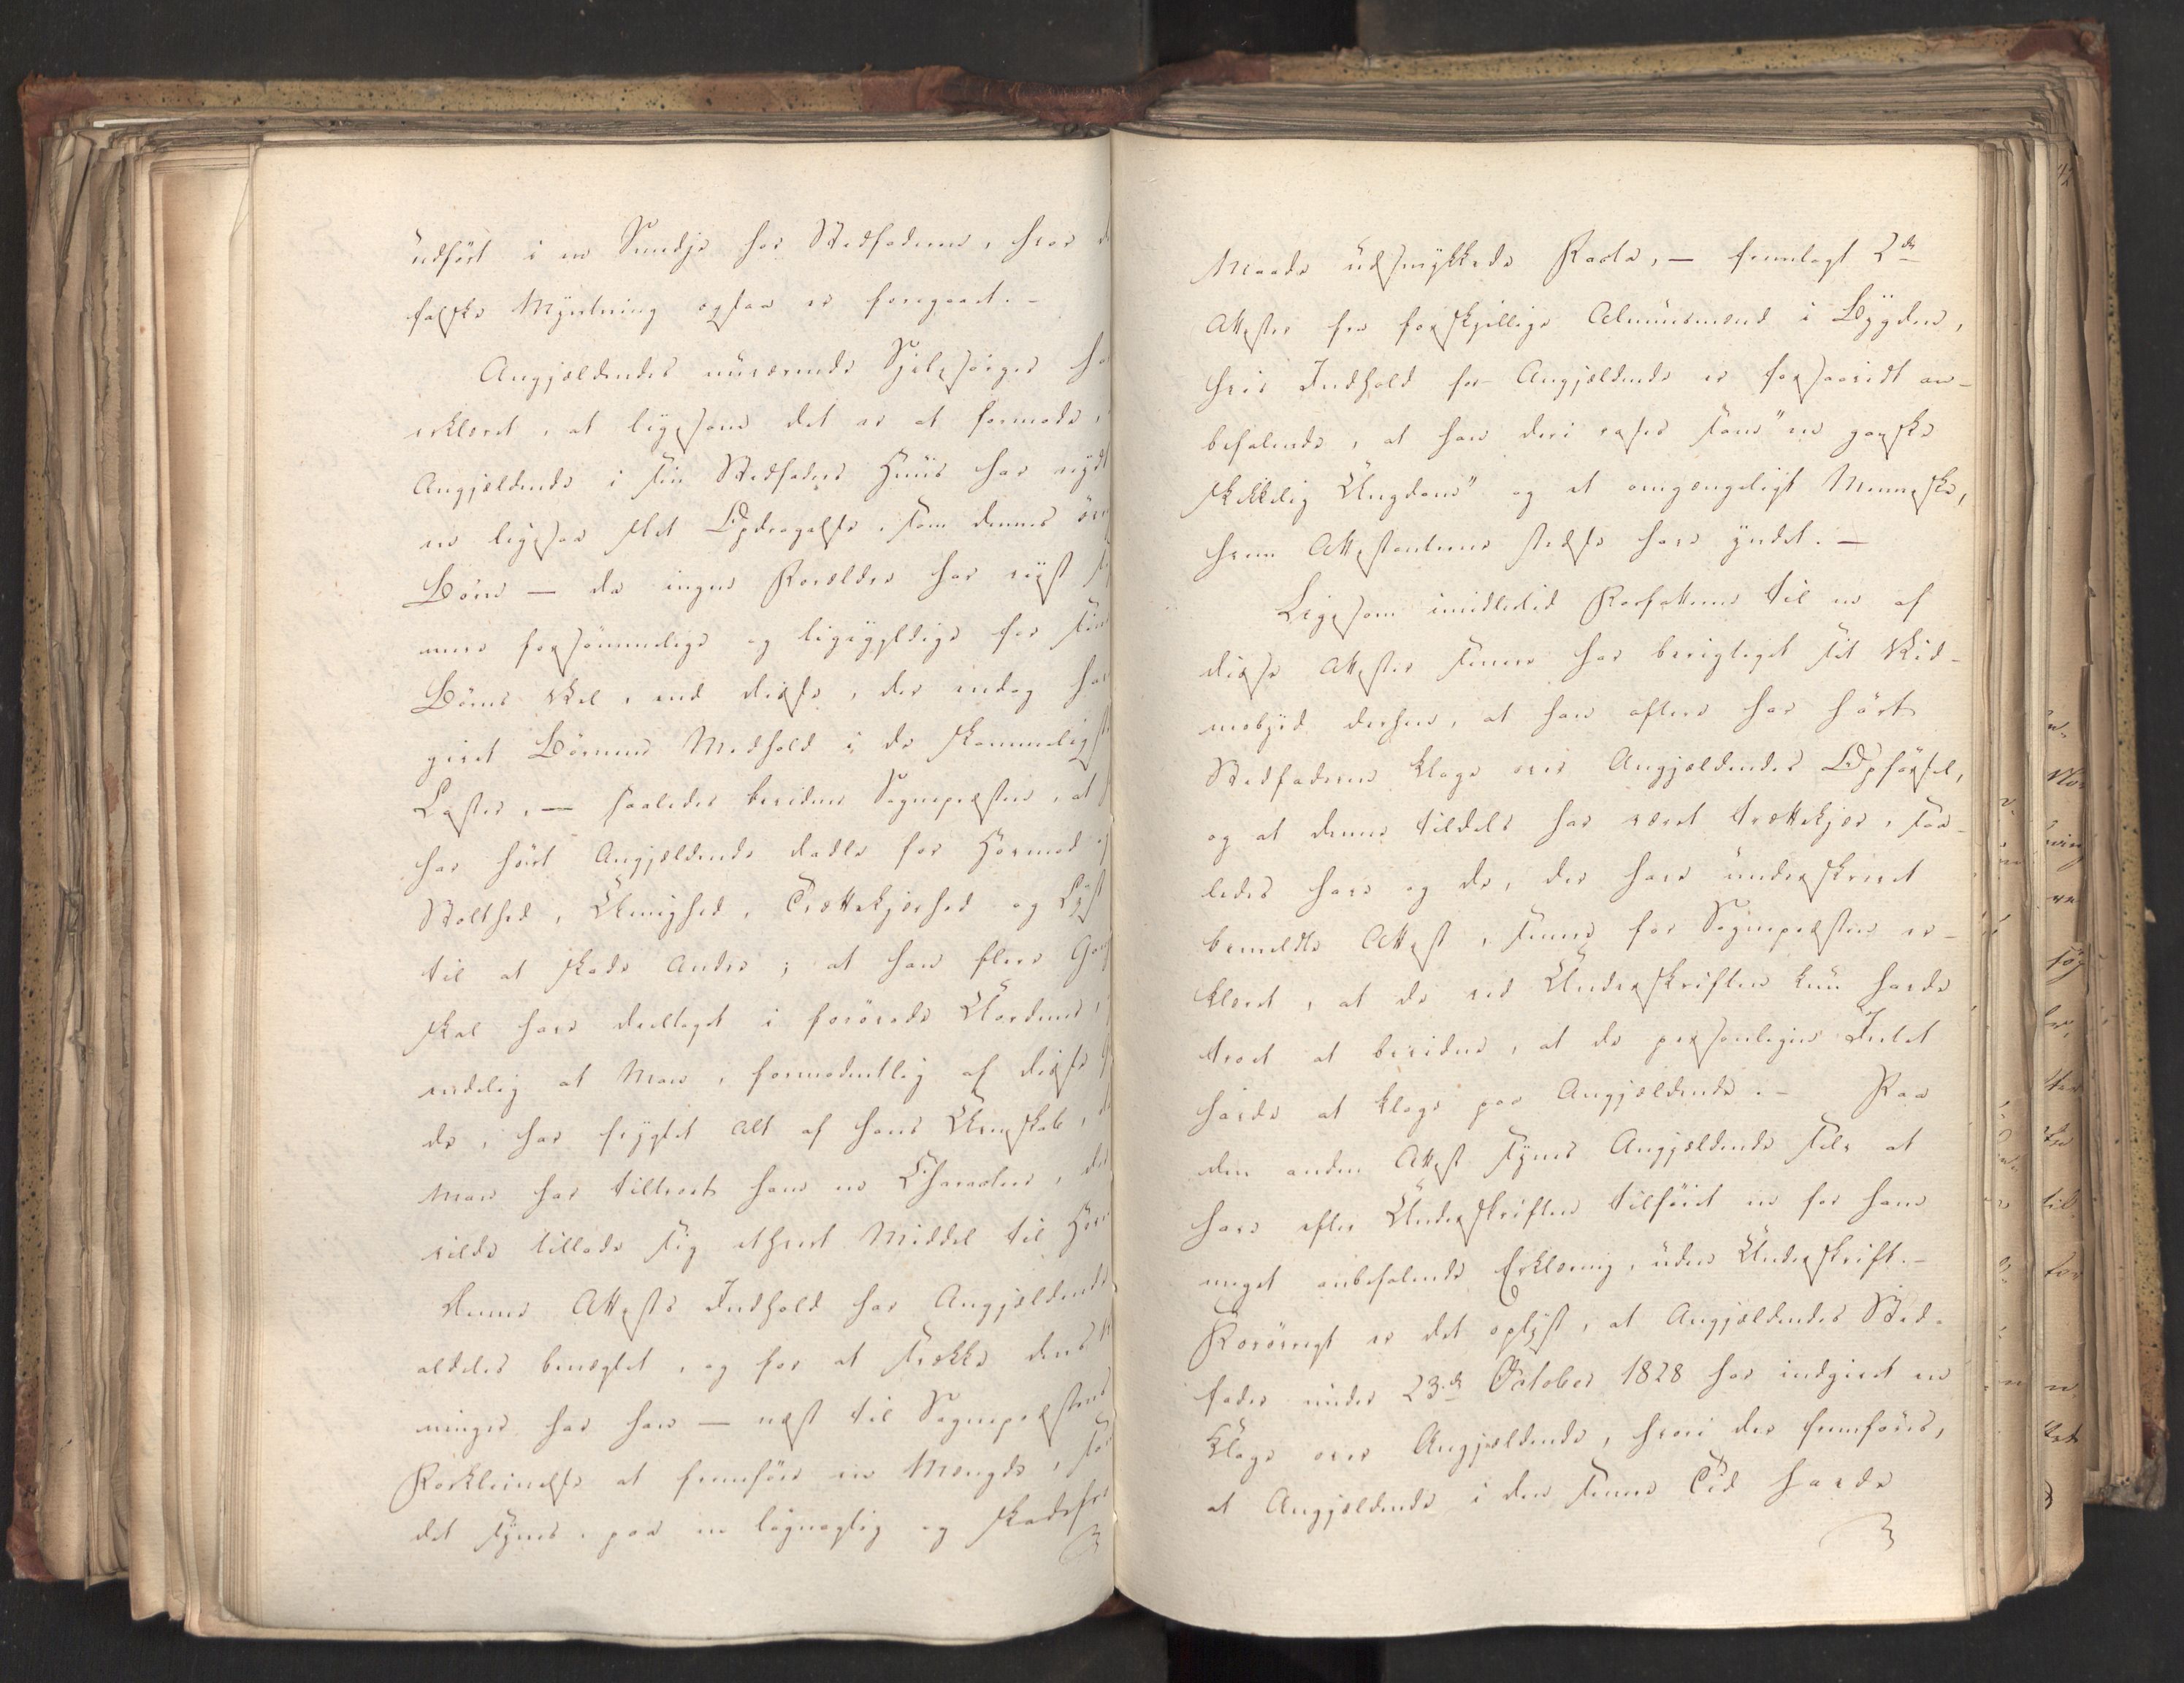 udført i en Smedje hos Stedfaderen, hvor d
falske Myntning ogsaa er foregaaet. -
Angjældendes nuværende Sjelesørger ha
erklæret, at ligesom det er at formode,
Angjældende i sin Stedfaders Huus har nydt
en ligesaa slet Opdragelse, som dennes øvr
Børn — da ingen Forældre har viist si
mere forsømmelige og ligegyldige for sine
Børns Vel, end disse, der endog har
givet Børnene Medhold i de skammeligst
Laster, — saaledes bevidner Sognepræsten, at
har hørt Angjældende dadle for Hovmod og
Stolthed, Uenighed, Trættekjærhed og Lyst
til at skade Andre; at han flere Gan
skal have deeltaget i forøvede Uordener,
endelig at Man, formodentlig af disse G
de, har frygtet Alt af hans Ven skab,
Man har tiltroet ham en Character, de
vilde tillade sig ethvert Middel til Hev
Denne Attests Indhold har Angjældende
aldeles benægtet, og for at svække dens
ninger har han — næst til Sognepræstens
Forkleinelse at fremføre en Mængde, som
det synes, paa en løgnagtig og skadefro
Maade udsmykkede Facta, — fremlagt 2de
Attester fra forskjellige Almuesmænd i Bygden,
hvis Indhold for Angjældende er forsaavidt an-
befalende, at han deri roses som "en ganske
skikkelig Ungdom" og et omgængeligt Menneske,
hvem Attestanterne stedse have yndet. —
Ligesom imidlertid Forfatteren til en af
disse Attester senere har berigtiget sit Vid-
nesbyrd derhen, at han oftere har hørt
Stedfaderen klage over Angjældendes Opførsel,
og at denne tildels har været trættekjær, saa-
ledes have og de, der have underskrevet
bemeldte Attest, senere for Sognepræsten er-
klæret, at de ved Underskriften kun havde
troet at bevidne, at de personligen Intet
havde at klage paa Angjældende. - Paa
den anden Attest synes Angjældende selv at
have efter Underskriften tilføiet en for ham
meget anbefalende Erklæring, uden Underskrift. -
Forøvrigt er det oplyst, at Angjældendes Sted-
fader under 23de October 1828 har indgivet en
Klage over Angjældende, hvori der fremføres,
at Angjældende i den senere Tid havde